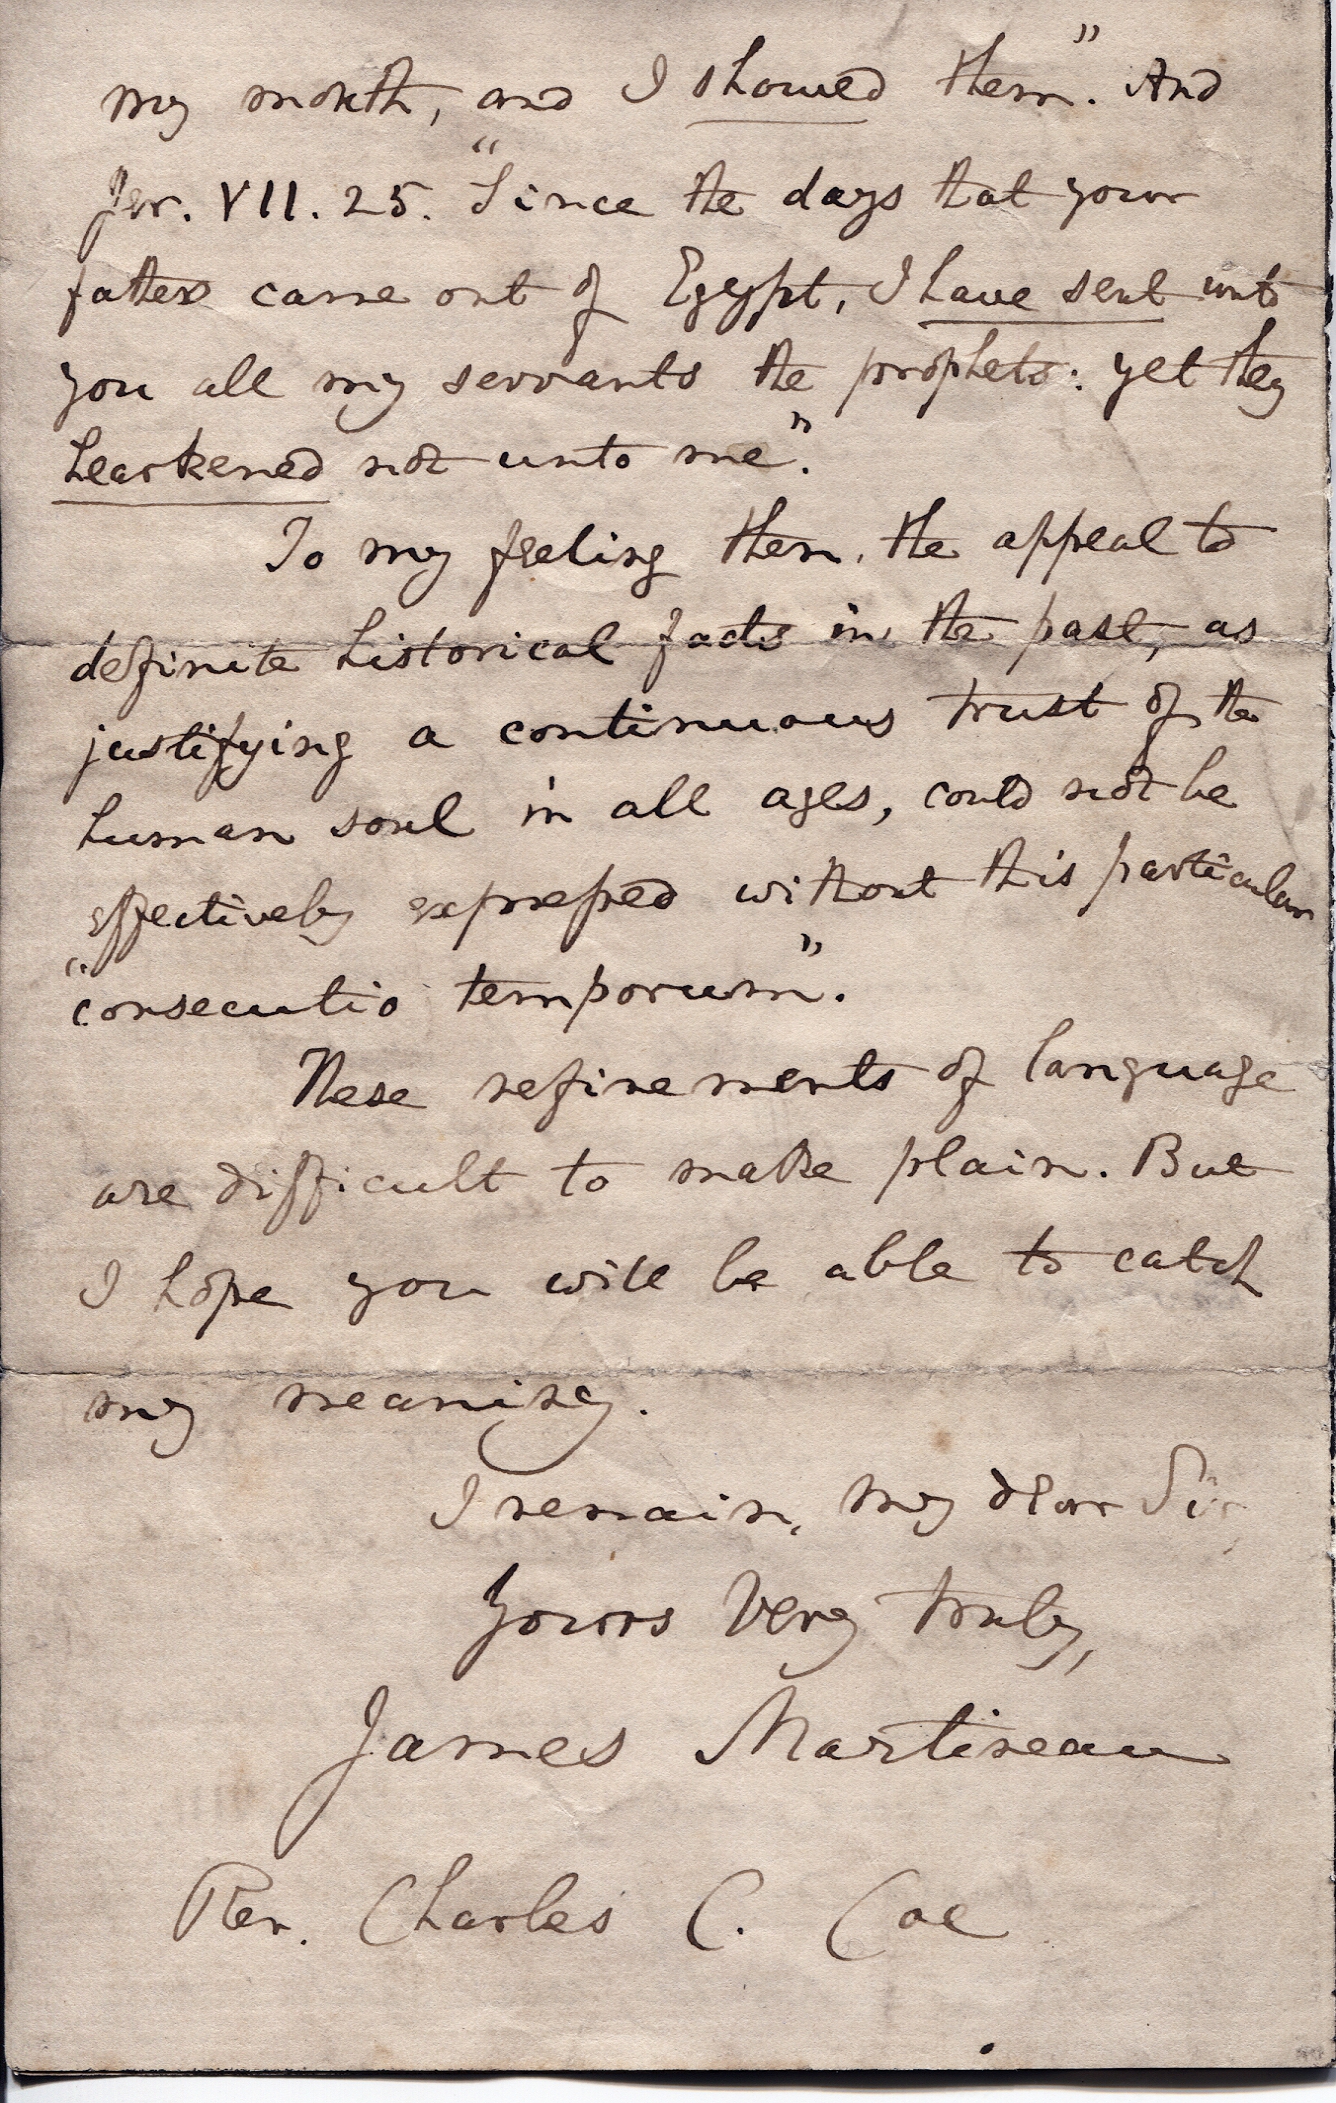 my mouth, and I showed them." And
Jer. VII. 25. "Since the days that your
fathers came out of Egypt, I have sent unto
you all my servants the prophets: yet they
hearkened not unto me".
To my feeling then, the appeal to
definite historical facts in the past, as
justifying a continuous trust of the
human soul in all ages, could not be
effectively expressed without this particular
"consecutio temporum".
These refinements of language
are difficult to make plain. But
I hope you will be able to catch
my meaning.
I remain, my dear Sir
Yours very truly,
James Martineau
Rev. Charles C. Coe